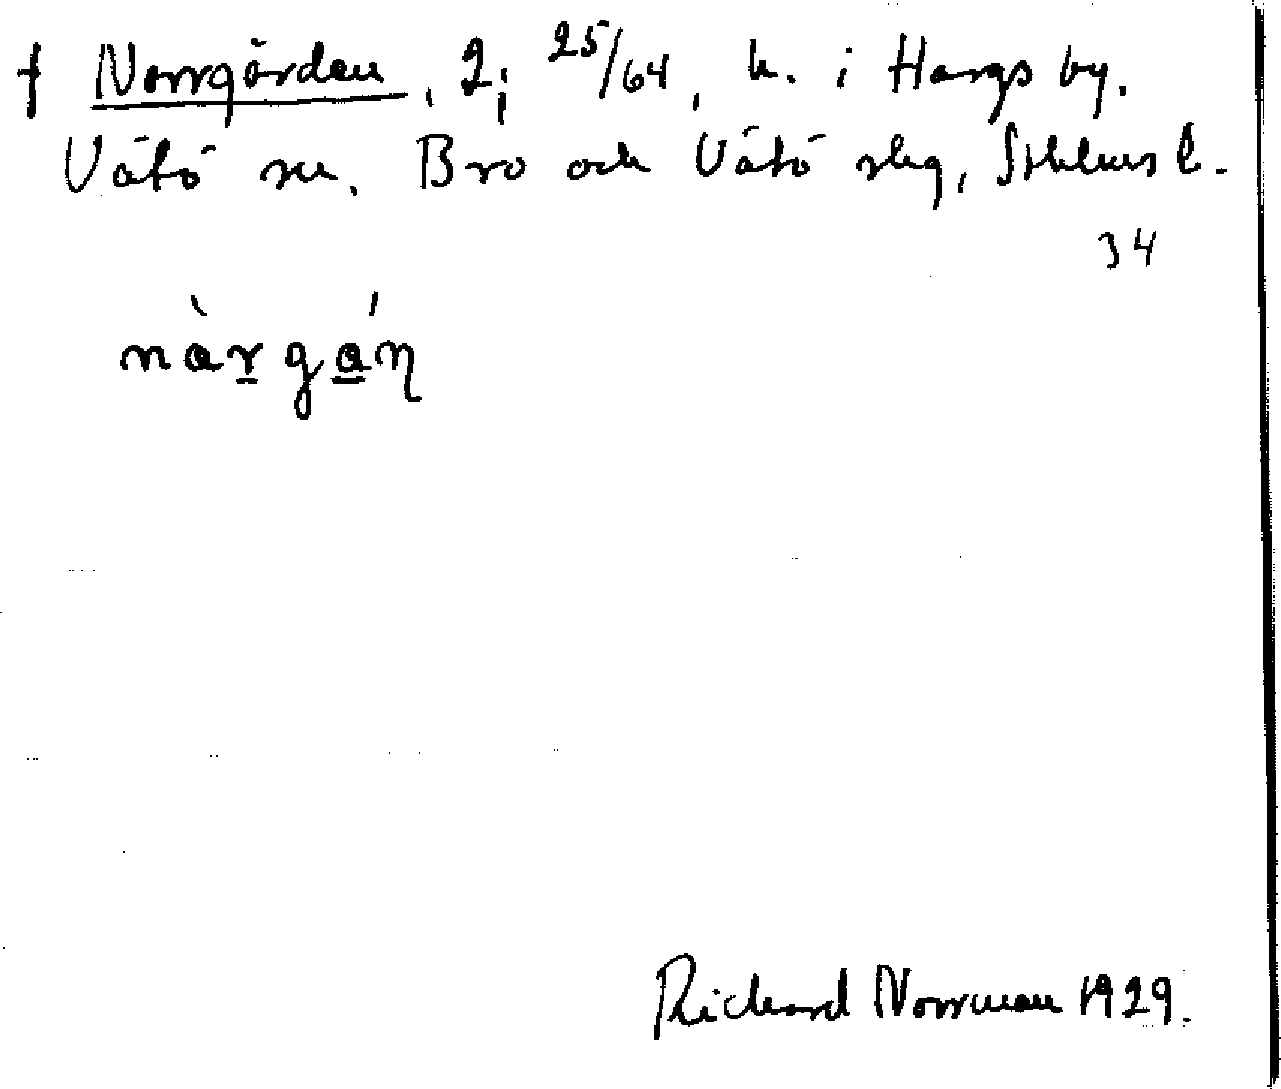 † Norrgården, 2; 25/64, h. i Hargs by.
Vätö sn. Bro och Vätö skg, Sthlms l.
34
nàrgán
Richard Norrman 1929.